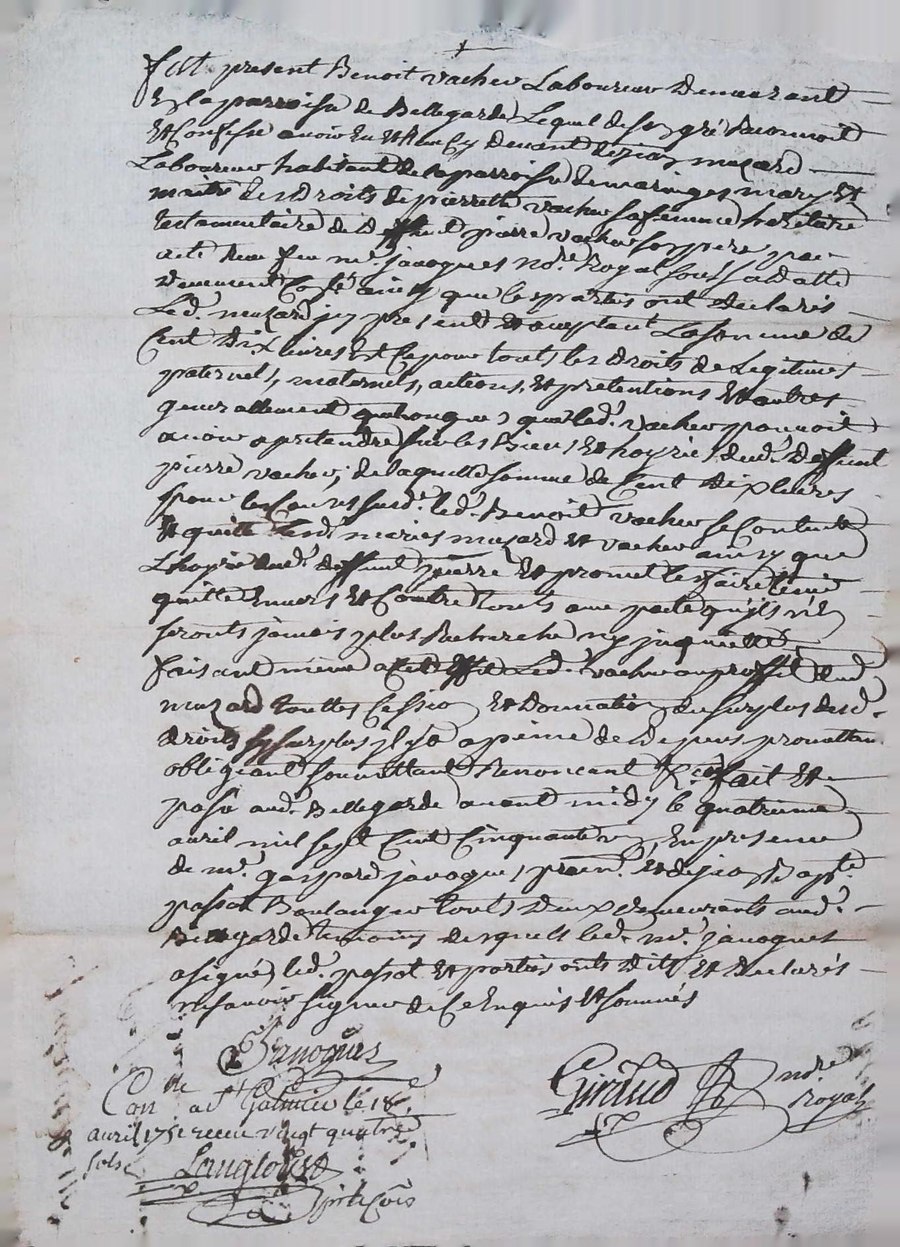 fut present Benoit vacher Laboureur Demeurant
En la parroisse de Bellegarde Lequel de son gré Reconnoit
Et Confesse avoir Eu Et Receu Cy Devant de jean muzard
Laboureur habitant de la parroisse de maringes mary Et
maitre des Droits de pierrette vacher sa femme heritiere
testamentaire de Deffunt pierre vacher son pere par
acte Receu feu me. javogues no.re Royal sous sa datte
Duement Col.é ainsy que les parties ont declarés
Led. muzard icy present Et aceptant La somme de
Cent Dix livres Et Ce pour touts les droits de Legitimes
paternels, maternels, actions, Et pretentions Et autres
generallement quelconques que led. vacher pouvoit
avoir a pretendre sur les Biens Et hoyrie dud. Deffunt
pierre vacher; de laquelle somme de Cent dix livres
pour les Causes susd. led. Benoit vacher se Contente
Et quitte lesd. mariés muzard Et vacher ainsy que
L'hoyrie dud. deffunt pierre Et promet les faire tenir
quitte Envers Et Contre touts avec pacte qu'ils n'En
seronts jamais plus Recherché ny inquietté
faisant meme a Cet Effet Led. vacher au proffit dud.
muzard touttes Cession Et Donnation du surplus desd.
droits sy surplus il y a a peine de depens promettant
obligeant soumettant Renoncant &c.a fait Et
passé aud. Bellegarde avant midy le quatrieme
avril mil sept Cent Cinquante un, En presence
de me. gaspard javogues prain. Et de jean Bapte.
passot Boulanger touts Deux demeurants aud.
Bellegarde temoins desquels led. me. javogues
a signé, led. passot Et parties onts dit Et declarés
ne savoir signer de Ce Enquis Et sommés
Javogues
Giraud nore Royal
Con.lé a St Galmier le 18e
avril 1751 receu vingt quatre
sols
Langlois